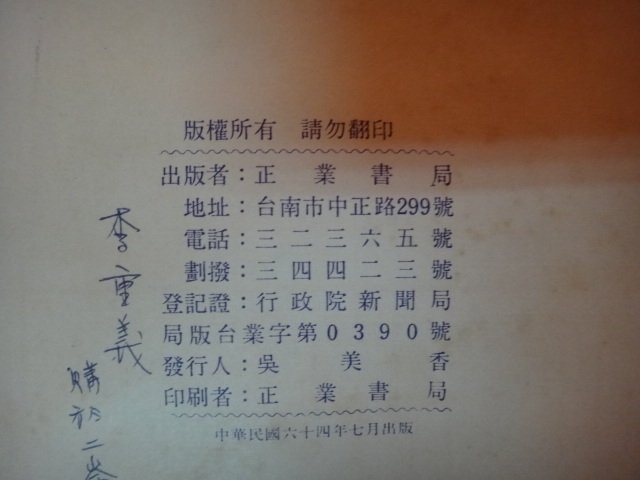 版權所有 請勿翻印
出版者：正業書局
地址：台南市中正路299號
電話：三二三六五號
劃撥：三四四二三號
登記證：行政院新聞局
局版台業字第0390號
發行人：吳美香
印刷者：正業書局
中華民國六十四年七月出版
李重義
購於二